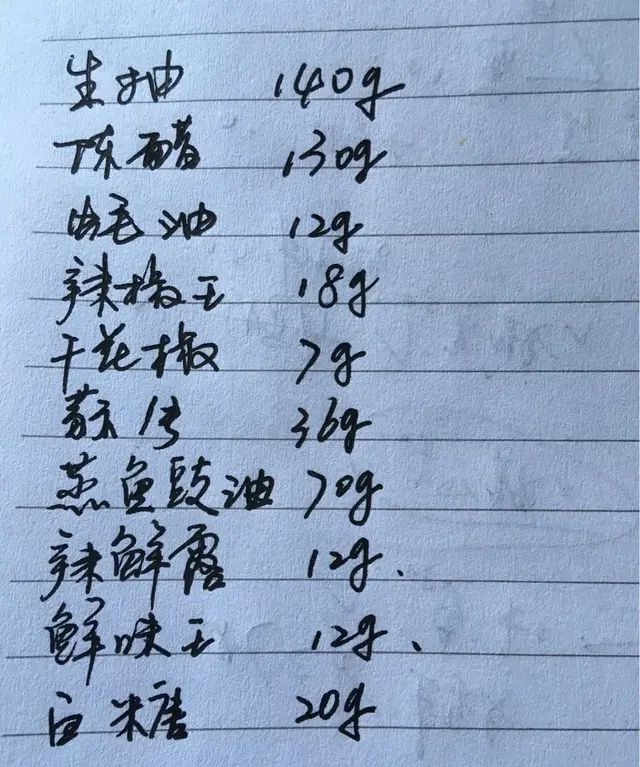 生抽 140g
陈醋 130g
蚝油 12g
辣椒王 18g
干花椒 7g
蒜仔 36g
蒸鱼豉油 70g
辣鲜露 12g.
鲜味王 12g、
白糖 20g